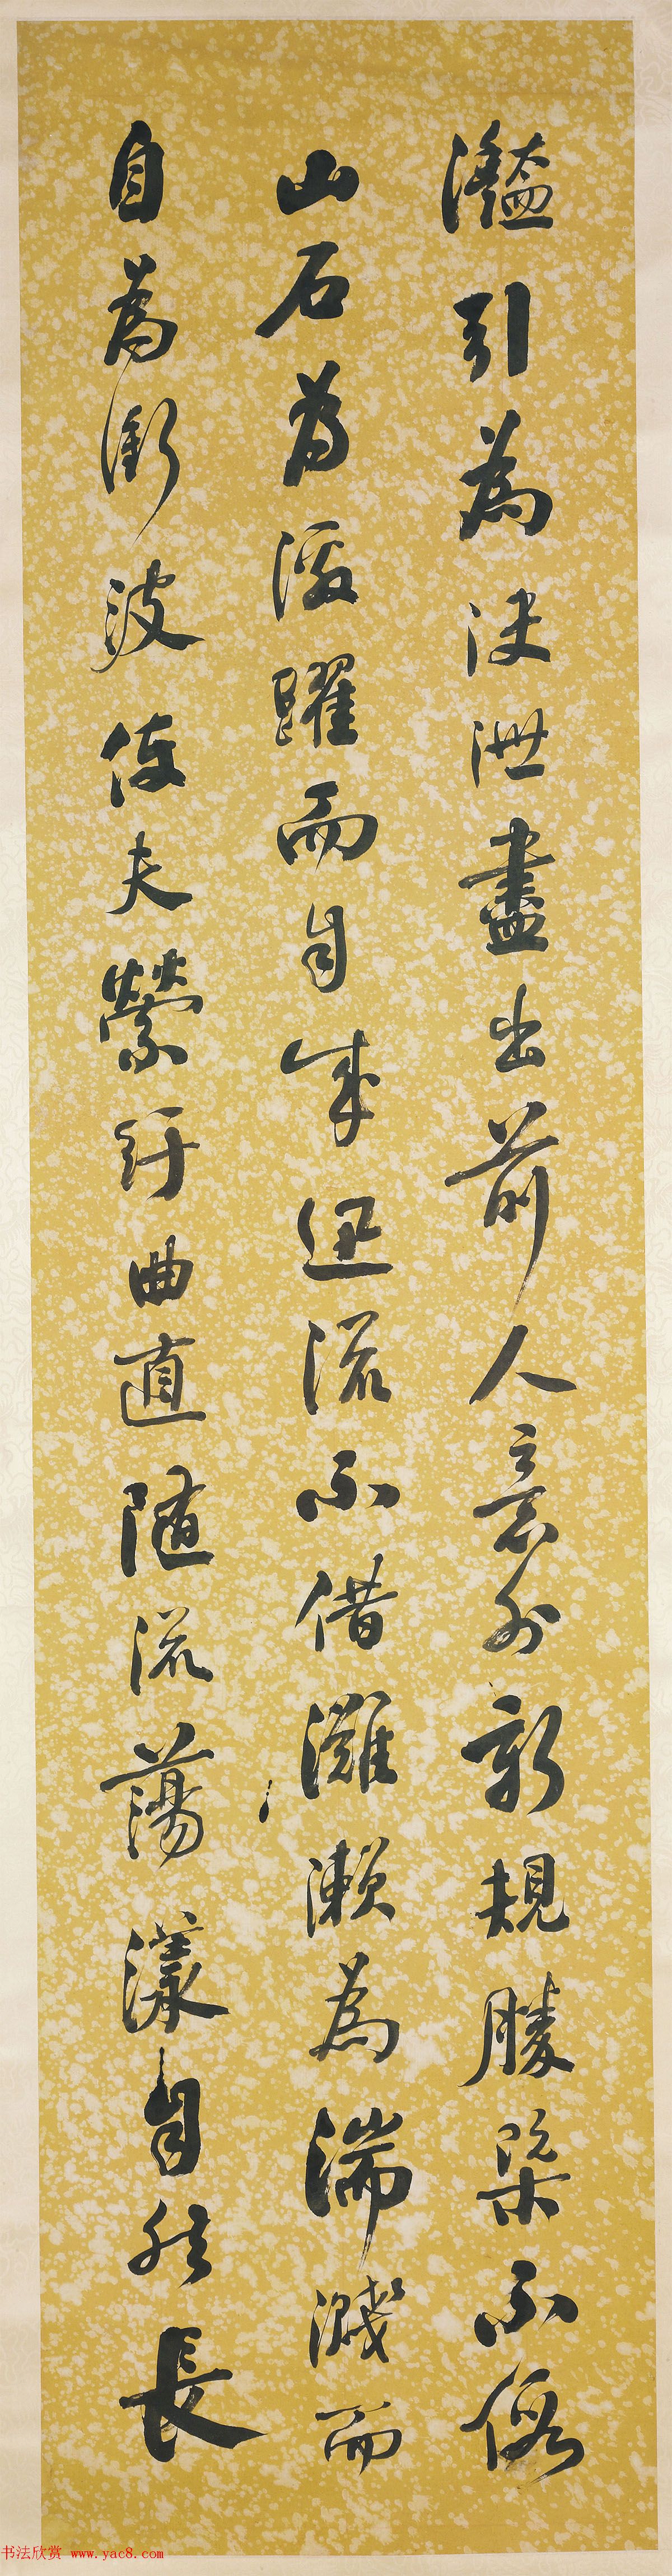 灎引為決泄盡出前人意外新規勝槩不假
山石為激躍而自成迅流不借灘瀨為湍濺而
自為衝波使夫縈紆曲直隨流蕩漾自然長
书法欣赏 www.yac8.com